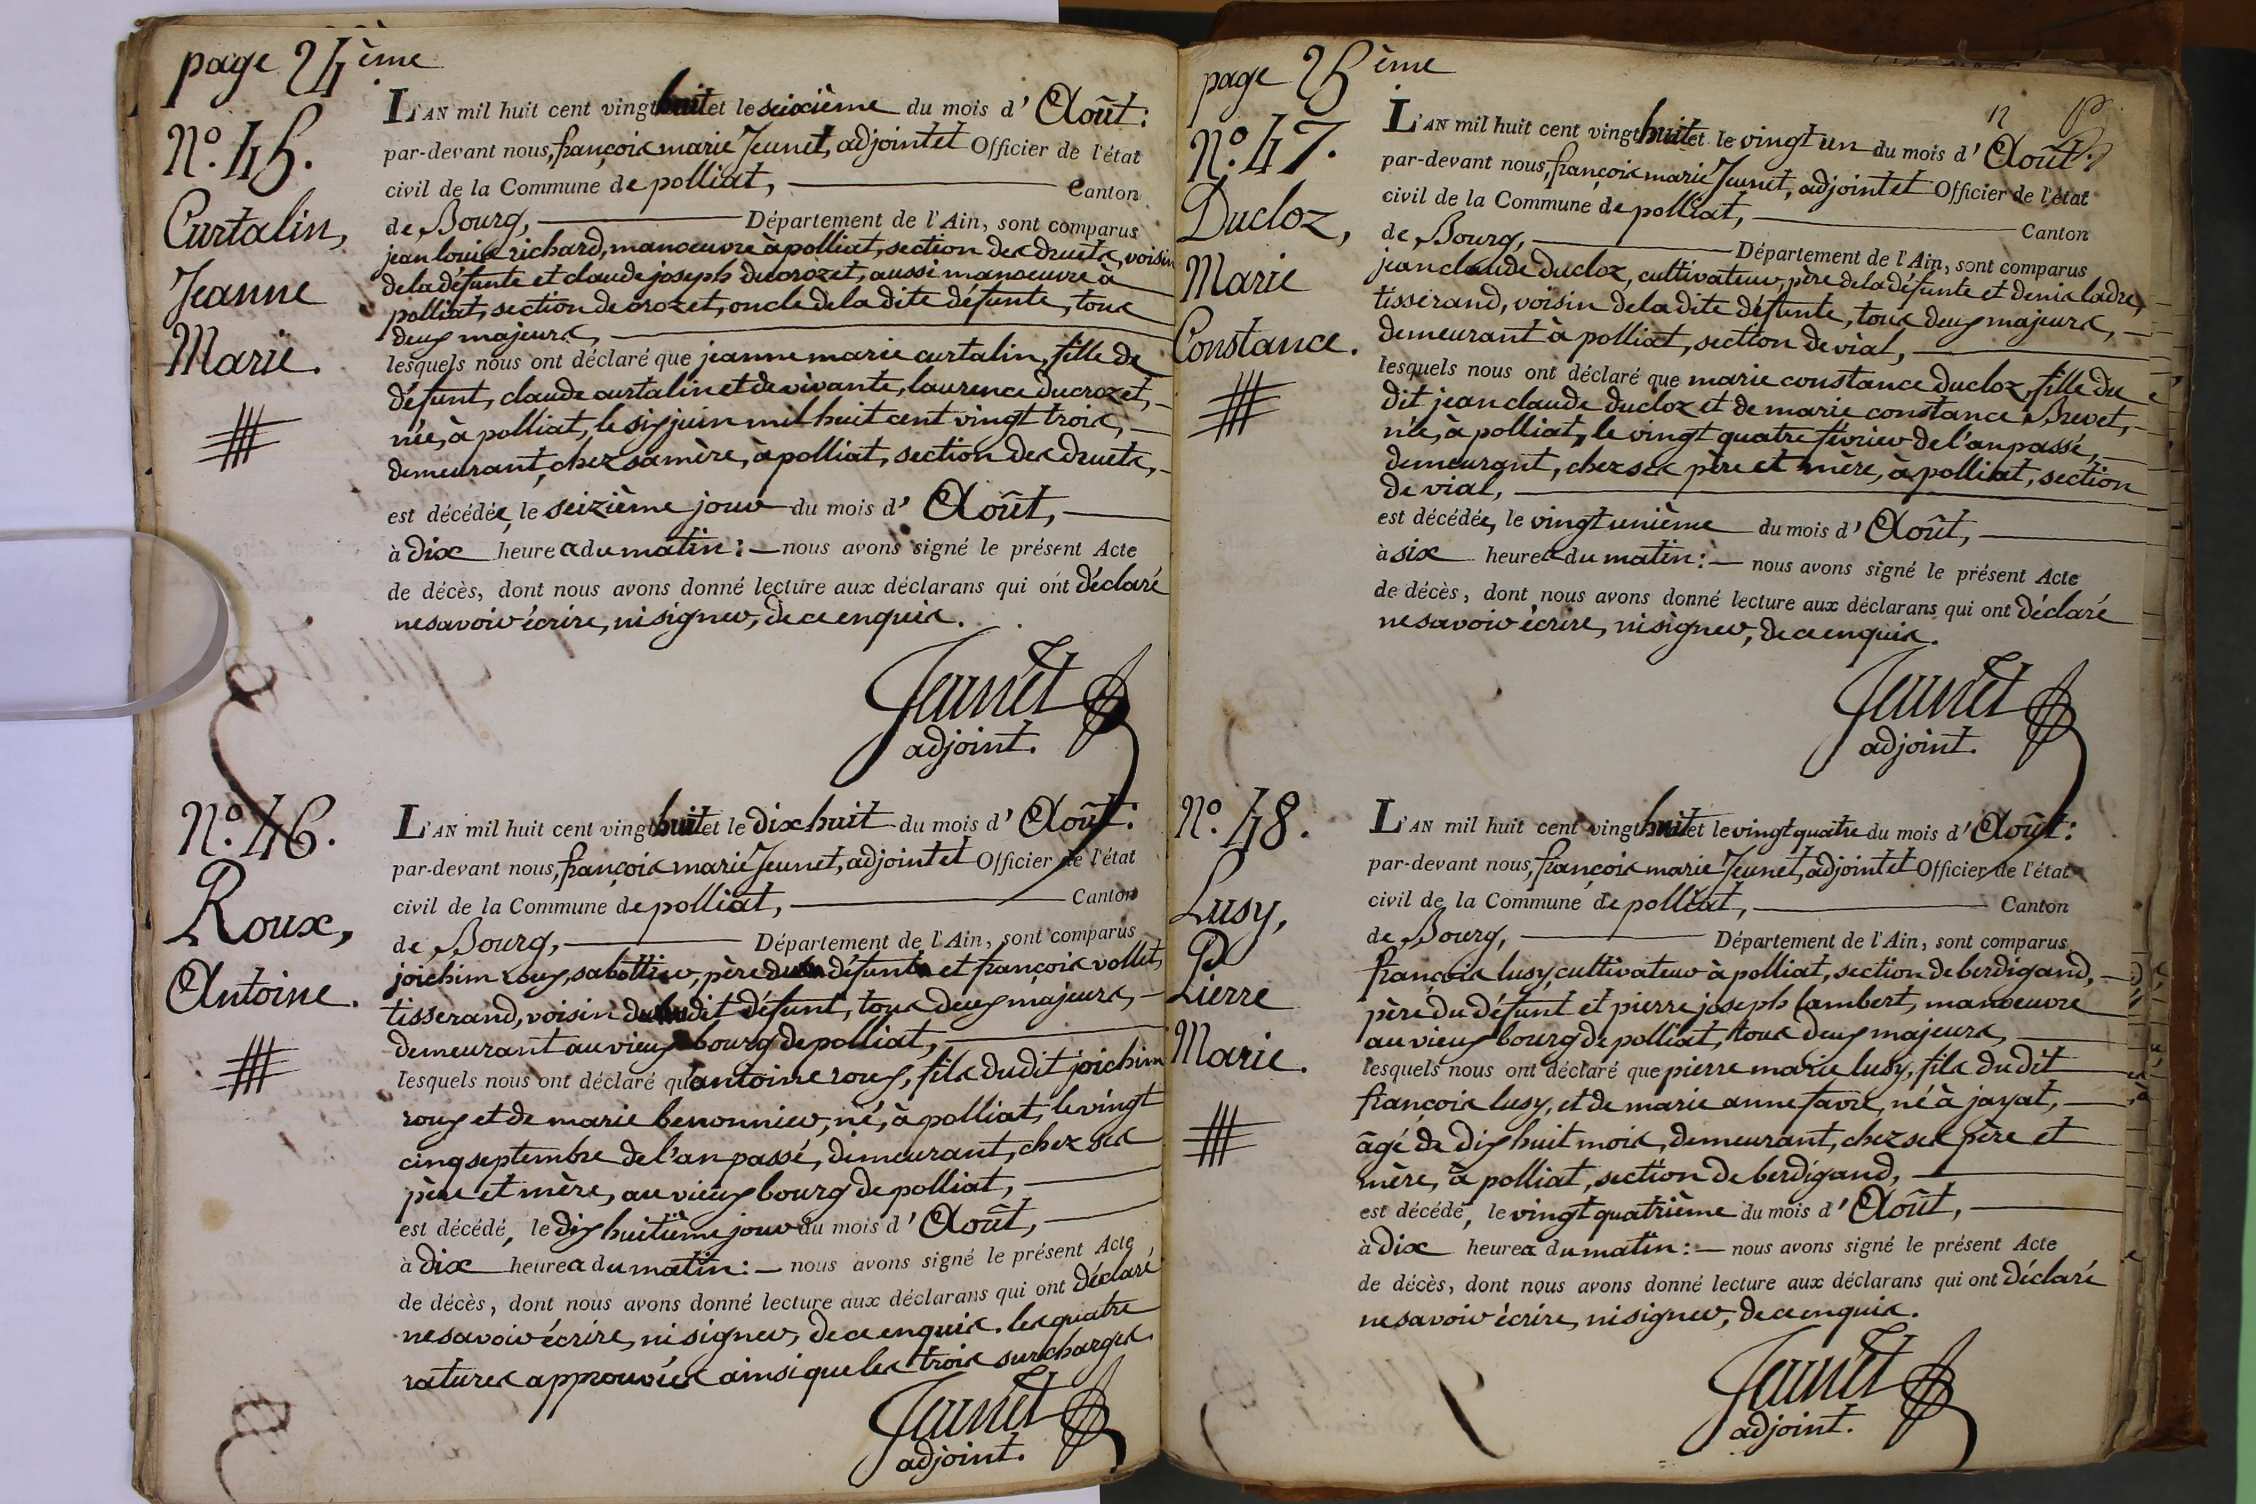 page 24ème
N.o 45.
Curtalin,
Jeanne
Marie.
L'AN mil huit cent vingt huit et le seixième du mois d' Août:
par-devant nous, françois marie Jeunet, adjoint et Officier de l'état
civil de la Commune de polliat, Canton
de Bourg, Département de l'Ain, sont comparus
jean louis richard, manoeuvre à polliat, section des druets, voisin
de la défunte et claude joseph ducrozet, aussi manoeuvre à
polliat, section de crozet, oncle de la dite défunte, tous
deux majeurs,
lesquels nous ont déclaré que jeanne marie curtalin, fille de
défunt, claude curtalin et de vivante, laurence ducrozet,
née, à polliat, le six juin mil huit cent vingt trois,
demeurant, chez sa mère, à polliat, section des druets,
est décédée, le seizième jour du mois d' Août,
à dix heures du matin: nous avons signé le présent Acte
de décès, dont nous avons donné lecture aux déclarans qui ont déclaré
ne savoir écrire, ni signer, de ce enquis.
Jeunet
adjoint.
N.o 46.
Roux,
Antoine.
L'AN mil huit cent vingt huit et le dix huit du mois d' Août:
par-devant nous, françois marie Jeunet, adjoint et Officier de l'état
civil de la Commune de polliat, Canton
de Bourg, Département de l'Ain, sont comparus
joichim roux, sabottier, père du défunt et françois vollet,
tisserand, voisin du dit défunt, tous deux majeurs,
demeurant au vieux bourg de polliat,
lesquels nous ont déclaré qu'antoine roux, fils du dit joichim
roux et de marie benonnier, né, à polliat, le vingt
cinq septembre de l'an passé, demeurant, chez ses
père et mère, au vieux bourg de polliat,
est décédé, le dix huitième jour du mois d' Août,
à dix heures du matin: nous avons signé le présent Acte
de décès, dont nous avons donné lecture aux déclarans qui ont déclaré
ne savoir écrire, ni signer, de ce enquis. les quatre
ratures approuvées ainsi que les trois surcharges.
Jeunet
adjoint.
page 25ème
N.o 47.
Ducloz,
Marie
Constance.
L'AN mil huit cent vingt huit et le vingt un du mois d' Août:
par-devant nous, françois marie Jeunet, adjoint et Officier de l'état
civil de la Commune de polliat, Canton
de Bourg, Département de l'Ain, sont comparus
jean claude ducloz, cultivateur, père de la défunte et denis ladre,
tisserand, voisin de la dite défunte, tous deux majeurs,
demeurant à polliat, section de vial,
lesquels nous ont déclaré que marie constance ducloz, fille du
dit jean claude ducloz et de marie constance Brevet,
née, à polliat, le vingt quatre février de l'an passé,
demeurant, chez ses père et mère, à polliat, section
de vial,
est décédée, le vingt unième du mois d' Août,
à six heures du matin: nous avons signé le présent Acte
de décès, dont nous avons donné lecture aux déclarans qui ont déclaré
ne savoir écrire, ni signer, de ce enquis.
Jeunet
adjoint.
N.o 48.
Lusy,
Pierre
Marie.
L'AN mil huit cent vingt huit et le vingt quatre du mois d' Août:
par-devant nous, françois marie Jeunet, adjoint et Officier de l'état
civil de la Commune de polliat, Canton
de Bourg, Département de l'Ain, sont comparus
françois lusy, cultivateur à polliat, section de berdigand,
père du défunt et pierre joseph lambert, manoeuvre
au vieux bourg de polliat, tous deux majeurs,
lesquels nous ont déclaré que pierre marie lusy, fils du dit
françois lusy, et de marie anne favre, né à jayat,
âgé de dix huit mois, demeurant, chez ses père et
mère, à polliat, section de berdigand,
est décédé, le vingt quatrième du mois d' Août,
à dix heures du matin: nous avons signé le présent Acte
de décès, dont nous avons donné lecture aux déclarans qui ont déclaré
ne savoir écrire, ni signer, de ce enquis.
Jeunet
adjoint.